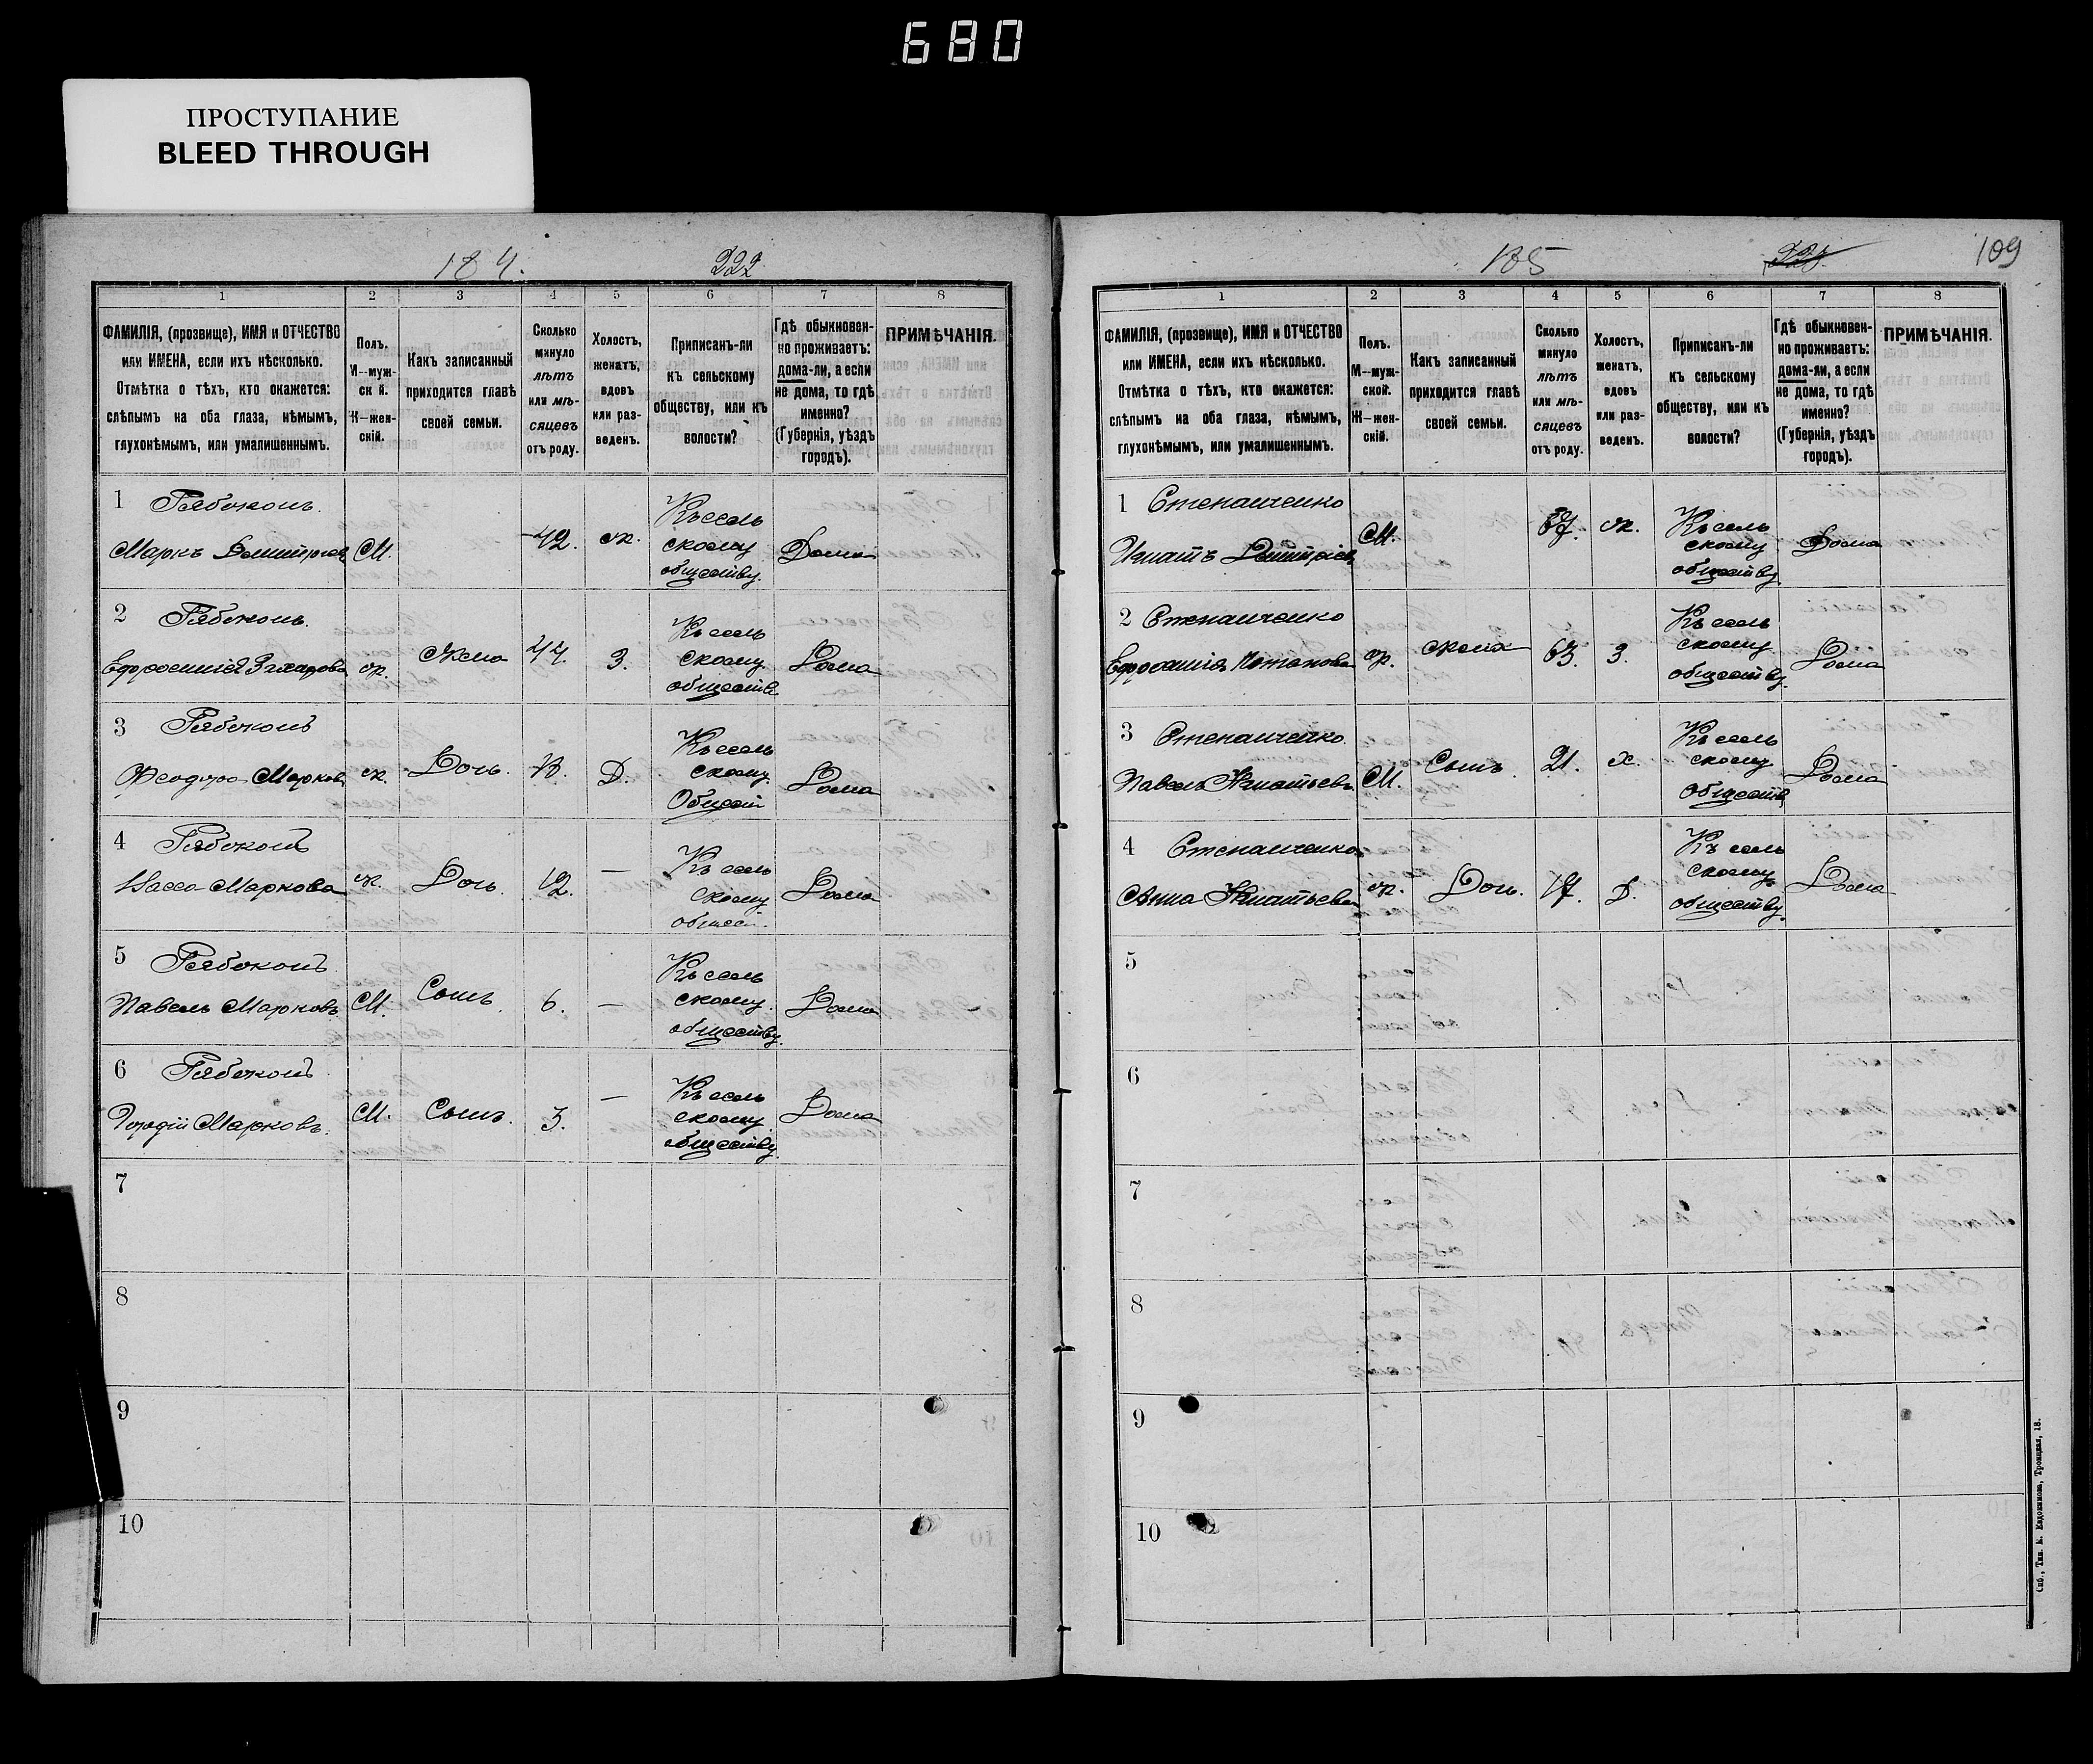 680
ПРОСТУПАНИЕ
BLEED THROUGH
184.
222
1 2 3 4 5 6 7 8
ФАМИЛІЯ, (прозвище), ИМЯ и ОТЧЕСТВО
или ИМЕНА, если ихъ нѣсколько.
Отмѣтка о тѣхъ, кто окажется:
слѣпымъ на оба глаза, нѣмымъ,
глухонѣмымъ, или умалишеннымъ.
Полъ.
М--муж-
ск й.
Ж—жен-
скій.
Какъ записанный
приходится главѣ
своей семьи.
Сколько
минуло
лѣтъ
или мѣ-
сяцевъ
отъ роду.
Холостъ,
женатъ,
вдовъ
или раз-
веденъ.
Приписанъ-ли
къ сельскому
обществу, или къ
волости?
Гдѣ обыкновен-
но проживаетъ:
дома-ли, а если
не дома, то гдѣ
именно?
(Губернія, уѣздъ
городъ).
ПРИМѢЧАНІЯ.
1 Рябоконь
Маркъ Дмитріев М. 42. ж. Къ сель
скому
обществу. Дома
2 Рябоконь
Ефросинія Захарова ж. Жена 44. З. Къ сель
скому
обществ Дома
3 Рябоконь
Феодора Марков ж. Дочь. 18. Д. Къ сель
скому
Общест Дома
4 Рябоконь
Васса Маркова ж. Дочь. 12. — Къ сель
скому
общест. Дома
5 Рябоконь
Павелъ Марковъ М. Сынъ. 6. — Къ сель
скому
обществу. Дома
6 Рябоконь
Гордій Марковъ. М. Сынъ. 3. — Къ сель
скому
обществу. Дома
7
8
9
10
185
109
1 2 3 4 5 6 7 8
ФАМИЛІЯ, (прозвище), ИМЯ и ОТЧЕСТВО
или ИМЕНА, если ихъ нѣсколько.
Отмѣтка о тѣхъ, кто окажется:
слѣпымъ на оба глаза, нѣмымъ,
глухонѣмымъ, или умалишеннымъ.
Полъ.
М--муж-
ской.
Ж—жен-
скій.
Какъ записанный
приходится главѣ
своей семьи.
Сколько
минуло
лѣтъ
или мѣ-
сяцевъ
отъ роду.
Холостъ,
женатъ,
вдовъ
или раз-
веденъ.
Приписанъ-ли
къ сельскому
обществу, или къ
волости?
Гдѣ обыкновен-
но проживаетъ:
дома-ли, а если
не дома, то гдѣ
именно?
(Губернія, уѣздъ
городъ).
ПРИМѢЧАНІЯ.
1 Степанченко
Игнатъ Дмитріев М. ж. Къ сель
скому
обществу Дома
2 Степанченко
Ефросинія Потапова ж. жена 63. З. Къ сель
скому
обществу. Дома
3 Степанченко
Павелъ Игнатьевъ М. Сынъ. 21. х. Къ сель
скому
Обществ Дома
4 Степанченко
Анна Игнатьева ж. Дочь. 17. Д. Къ сель
скому
обществу. Дома
5
6
7
8
9
10
Спб., Тип. М. Евдокимова, Троицкая, 18.